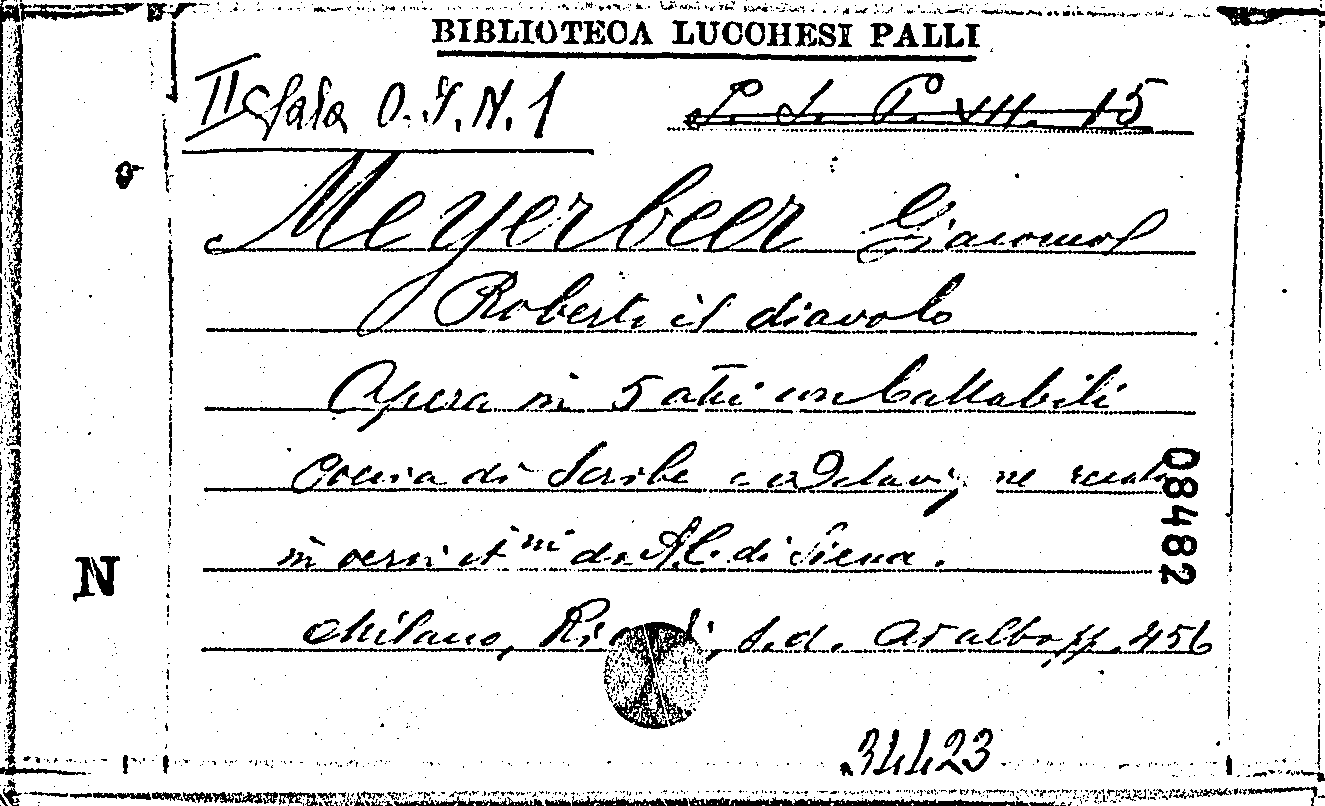 BIBLIOTECA LUCCHESI PALLI
II Sala O. I. N. 1
S. S. P. VII. 15
Meyerbeer Giacomo
Roberto il diavolo
Opera in 5 atti con ballabili
Poesia di Scribe e Delavi, ne recato
in versi it.ni da A. C. di Siena.
Milano, Ri i, s. d. pp. 456
08482
N
34423